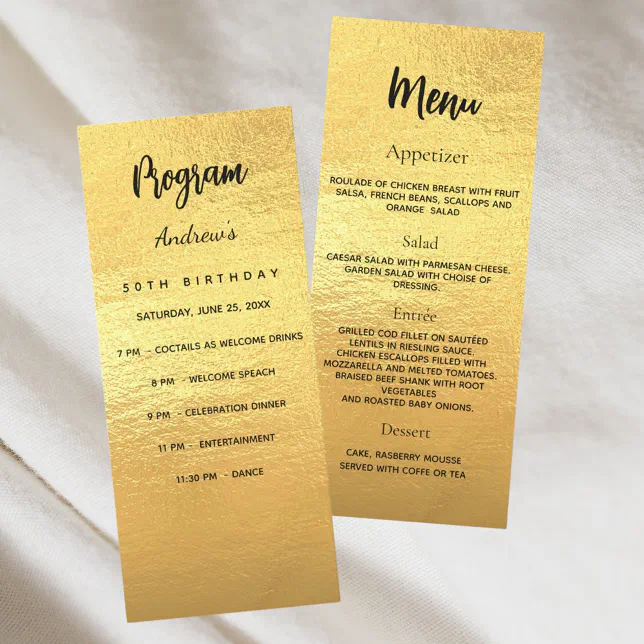 Program
Andrew's
50TH BIRTHDAY
SATURDAY, JUNE 25, 20XX
7 PM - COCTAILS AS WELCOME DRINKS
8 PM - WELCOME SPEACH
9 PM - CELEBRATION DINNER
11 PM - ENTERTAINMENT
11:30 PM - DANCE
Menu
Appetizer
ROULADE OF CHICKEN BREAST WITH FRUIT
SALSA, FRENCH BEANS, SCALLOPS AND
ORANGE SALAD
Salad
CAESAR SALAD WITH PARMESAN CHEESE.
GARDEN SALAD WITH CHOISE OF
DRESSING.
Entrée
GRILLED COD FILLET ON SAUTÉED
LENTILS IN RIESLING SAUCE.
CHICKEN ESCALLOPS FILLED WITH
MOZZARELLA AND MELTED TOMATOES.
BRAISED BEEF SHANK WITH ROOT
VEGETABLES
AND ROASTED BABY ONIONS.
Dessert
CAKE, RASBERRY MOUSSE
SERVED WITH COFFE OR TEA